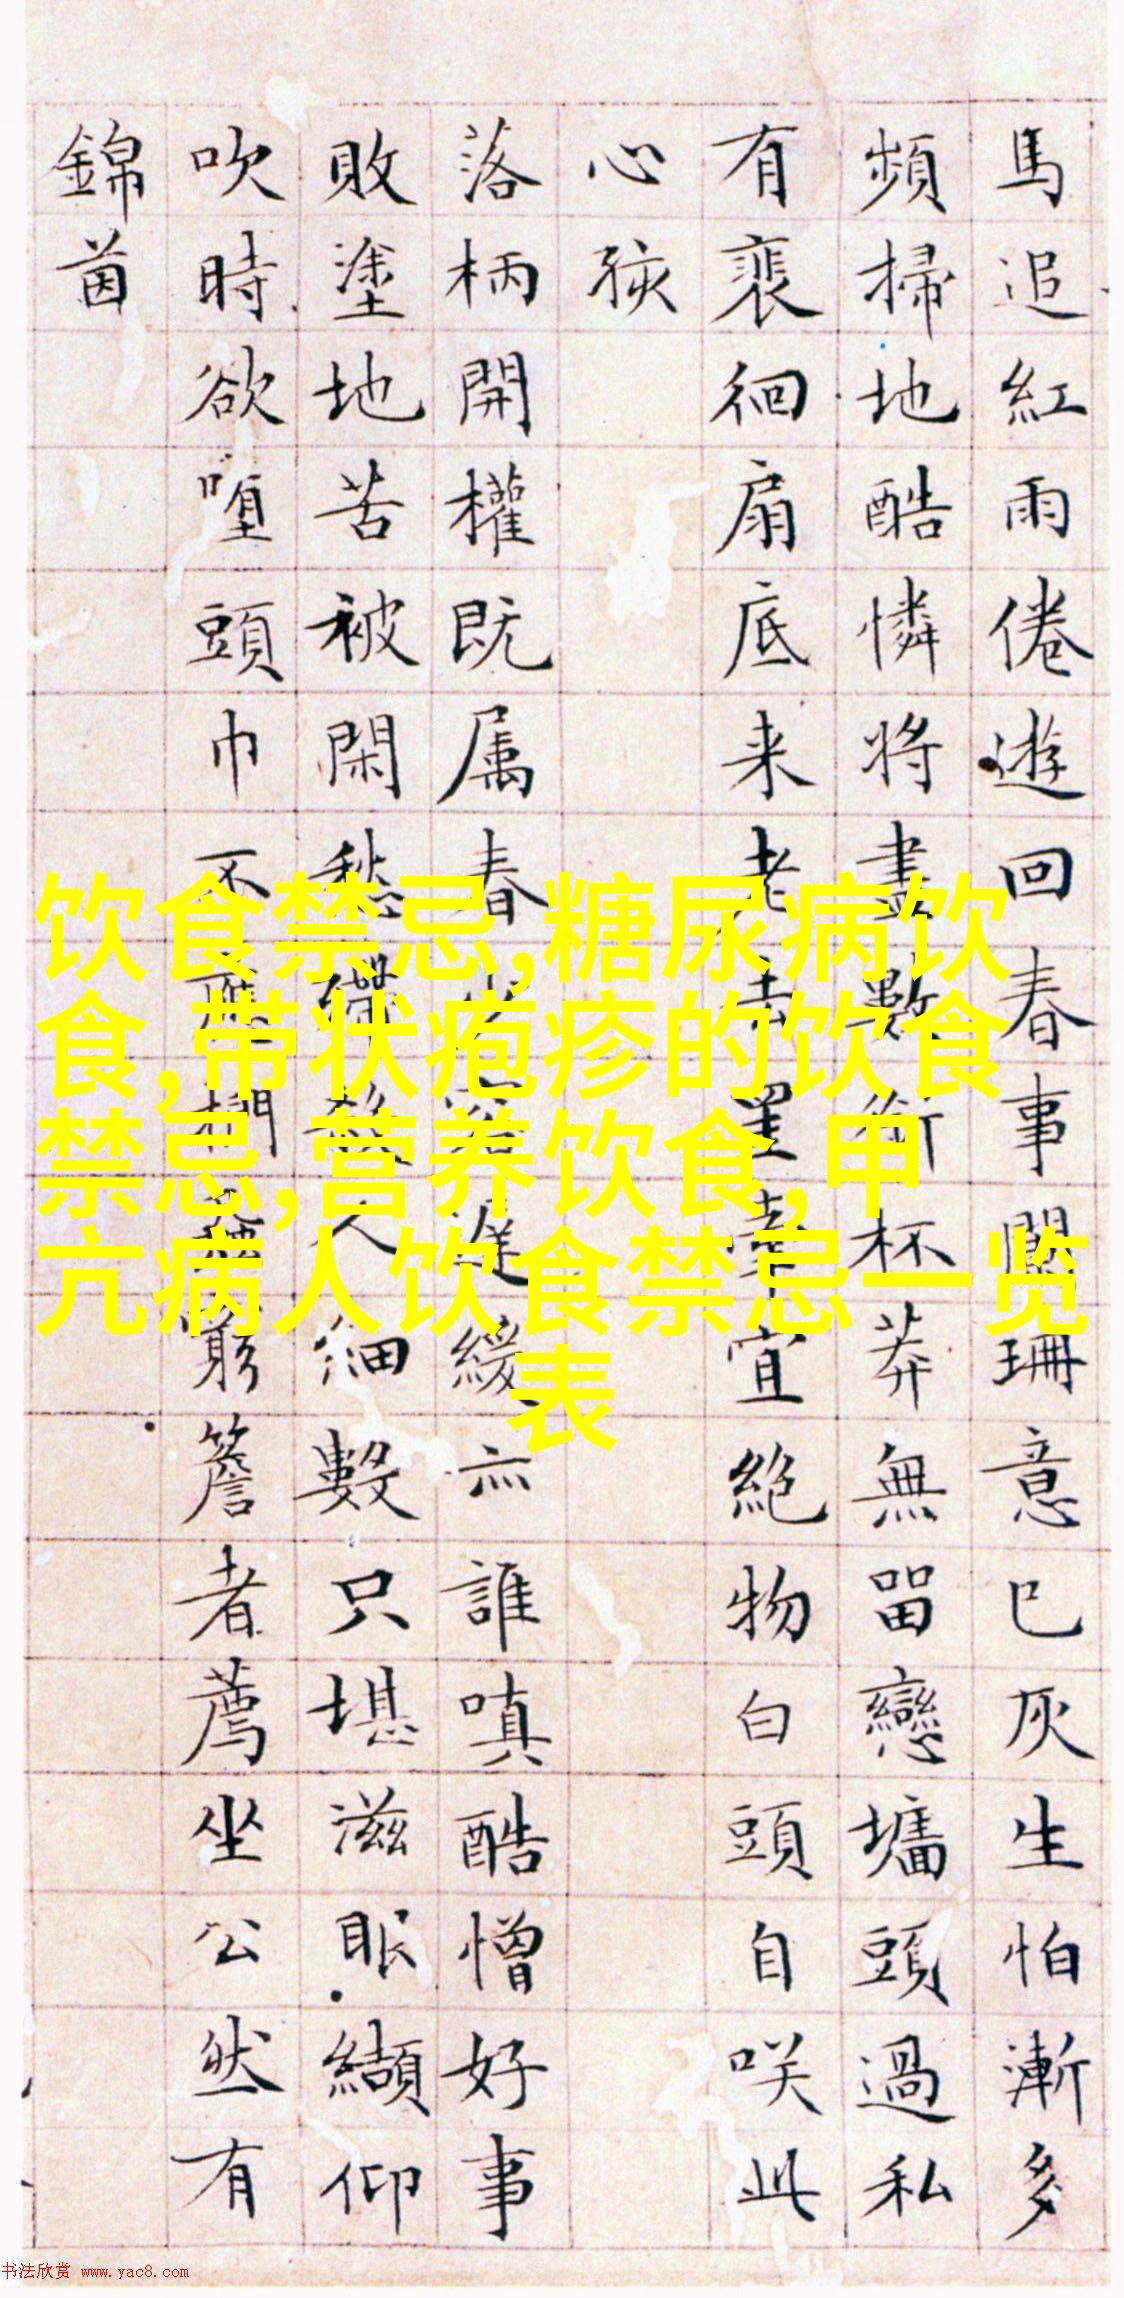 馬追紅雨倦遊回春事闌珊意已灰生怕漸多
頻掃地酷憐將盡數銜杯莽無留戀墻頭過私
有裴徊扇底来老去星星宜絕物白頭自咲此
心孩
落柄開權既属春少容遅緩亦誰嗔酷憎好事
敗塗地苦被閑愁人細數只堪滋眠纈仰
吹時欲墮頭巾不應躬簷者薦坐公然有
錦茵
饮食禁忌,糖尿病饮
食,带状疱疹的饮食
禁忌,营养饮食,甲
亢病人饮食禁忌一览
表
书法欣赏 www.yac8.com